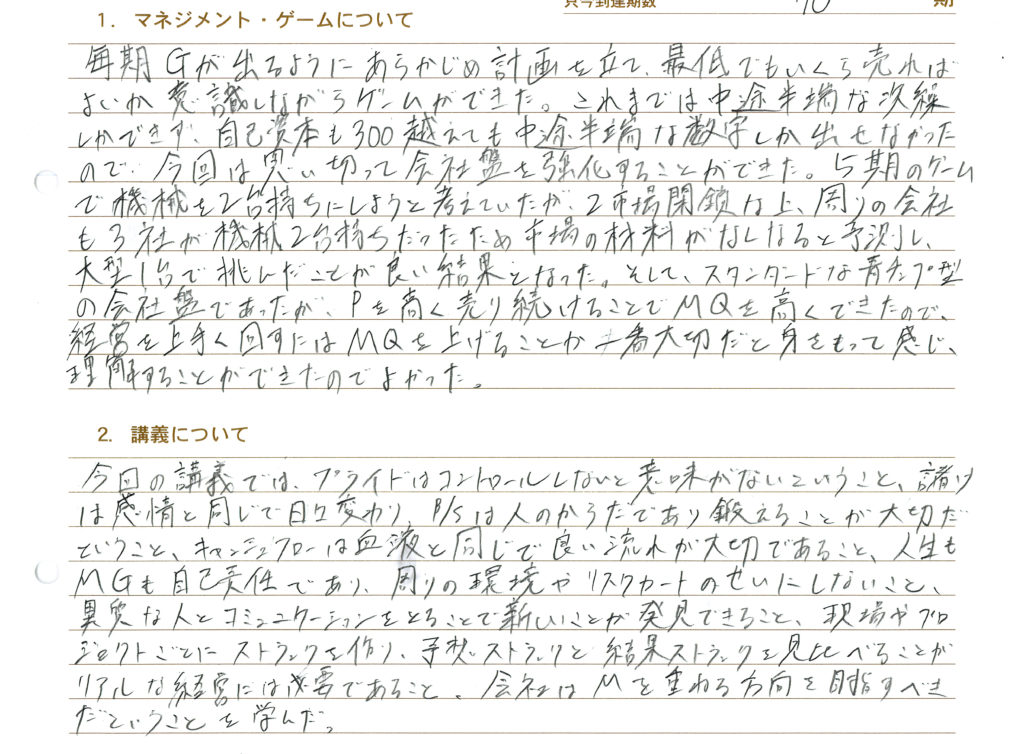 只今到達期数 70 期
1. マネジメント・ゲームについて
毎期Gが出るようにあらかじめ計画を立て、最低でもいくら売れば
よいか意識しながらゲームができた。これまでは中途半端な次繰
しかできず、自己資本も300越えても中途半端な数字しか出せなかった
ので、今回は思い切って会社盤を強化することができた。5期のゲーム
で機械を2台持ちにしようと考えていたが、2市場閉鎖な上、周りの会社
も3社が機械2台持ちだったため市場の材料がなくなると予測し、
大型1台で挑んだことが良い結果となった。そして、スタンダードな青チップ型
の会社盤であったが、Pを高く売り続けることでMQを高くできたので、
経営を上手く回すにはMQを上げることが一番大切だと身をもって感じ、
理解することができたのでよかった。
2. 講義について
今回の講義では、プライドはコントロールしないと意味がないということ、諸け
は感情と同じで日々変わり、P/Sは人のからだであり鍛えることが大切だ
ということ、キャッシュフローは血液と同じで良い流れが大切であること、人生も
MGも自己責任であり、周りの環境やリスクカードのせいにしないこと、
異質な人とコミュニケーションをとることで新しいことが発見できること、現場やプロ
ジェクトごとにストラックを作り、予想ストラックと結果ストラックを見比べることが
リアルな経営には必要であること、会社はMを重ねる方向を目指すべき
だということを学んだ。